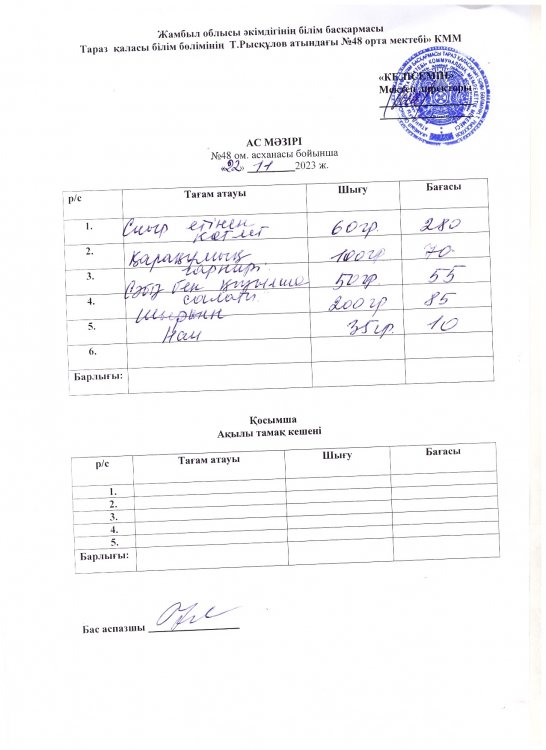 Жамбыл облысы әкімдігінің білім басқармасы
Тараз қаласы білім бөлімінің Т.Рысқұлов атындағы №48 орта мектебі» КММ
«КЕЛІСЕМІН»
Мектеп директоры
АС МӘЗІРІ
№48 ом. асханасы бойынша
«22» 11 2023 ж.
р/с Тағам атауы Шығу Бағасы
1. Сиыр етінен котлет 60гр. 280
2. Қарақұмық гарнирі. 100гр 70
3. Сәбіз бен қызылша салаты 50гр. 55
4. Шырын 200гр 85
5. Нан 35гр. 10
6.
Барлығы:
Қосымша
Ақылы тамақ кешені
р/с Тағам атауы Шығу Бағасы
1.
2.
3.
4.
5.
Барлығы:
Бас аспазшы